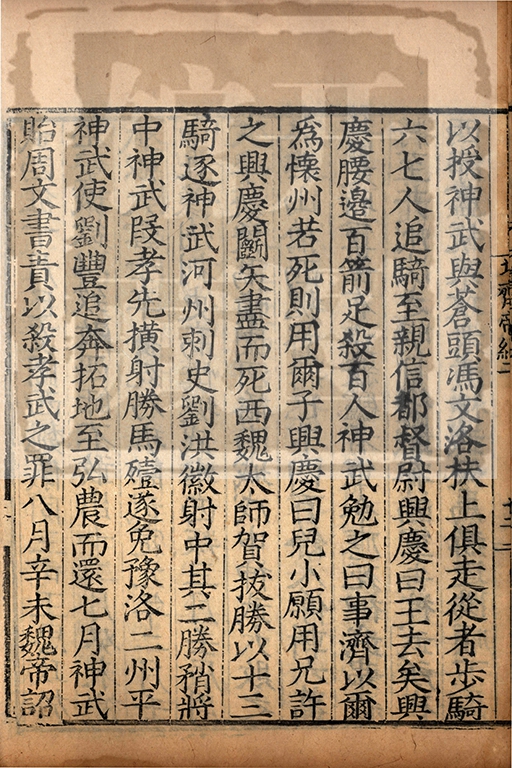 以授神武與蒼頭馮文洛扶上俱走從者步騎
六七人追騎至親信都督尉興慶曰王去矣興
慶腰邊百箭足殺百人神武勉之曰事濟以爾
爲懷州若死則用爾子興慶曰兒小願用兄許
之興慶鬬矢盡而死西魏太師賀拔勝以十三
騎逐神武河州刺史劉洪徽射中其二勝矟將
中神武段孝先橫射勝馬殪遂免豫洛二州平
神武使劉豐追奔拓地至弘農而還七月神武
貽周文書責以殺孝武之罪八月辛未魏帝詔